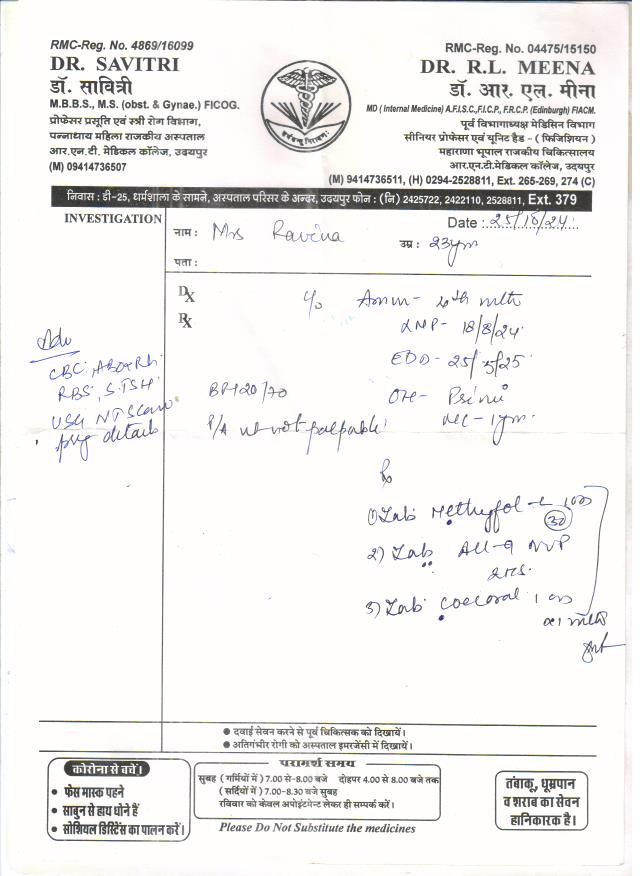 RMC-Reg. No. 4869/16099
DR. SAVITRI
डॉ. सावित्री
M.B.B.S., M.S. (obst. & Gynae.) FICOG.
प्रोफेसर प्रसूति एवं स्त्री रोग विभाग,
पन्नाधाय महिला राजकीय अस्पताल
आर.एन.टी. मेडिकल कॉलेज, उदयपुर
(M) 09414736507
RMC-Reg. No. 04475/15150
DR. R.L. MEENA
डॉ. आर. एल. मीना
MD ( Internal Medicine) A.F.I.S.C.,F.I.C.P., F.R.C.P. (Edinburgh) FIACM.
पूर्व विभागाध्यक्ष मेडिसिन विभाग
सीनियर प्रोफेसर एवं यूनिट हैड - ( फिजिशियन )
महाराणा भूपाल राजकीय चिकित्सालय
आर.एन.टी.मेडिकल कॉलेज, उदयपुर
(M) 9414736511, (H) 0294-2528811, Ext. 265-269, 274 (C)
निवास : डी-25, धर्मशाला के सामने, अस्पताल परिसर के अन्दर, उदयपुर फोन : (नि) 2425722, 2422110, 2528811, Ext. 379
INVESTIGATION
नाम : Mrs Ravina
Date :
उम्र : 23yrs
पता :
Dx
Rx
c/o Amm-
LMP- 18/8/24
EDD- 25/5/25
Adv
CBC, ABORh
RBS, S.TSH
USG NT Scan
preg details
BP-120/70
P/A ut not palpable
Rx
1) Tab
30
2) Tab NVP
3) Tab 1 OD
x 1 mth
● दवाई सेवन करने से पूर्व चिकित्सक को दिखायें।
● अतिगंभीर रोगी को अस्पताल इमरजेंसी में दिखायें।
कोरोना से बचें।
• फेस मास्क पहने
• साबुन से हाथ धोने हैं
• सोशियल डिस्टेंस का पालन करें।
परामर्श समय
सुबह ( गर्मियों में ) 7.00 से-8.00 बजे दोहपर 4.00 से 8.00 बजे तक
( सर्दियों में ) 7.00-8.30 बजे सुबह
रविवार को केवल अपोइंटमेन्ट लेकर ही सम्पर्क करें।
Please Do Not Substitute the medicines
तंबाकू, धूम्रपान
व शराब का सेवन
हानिकारक है।